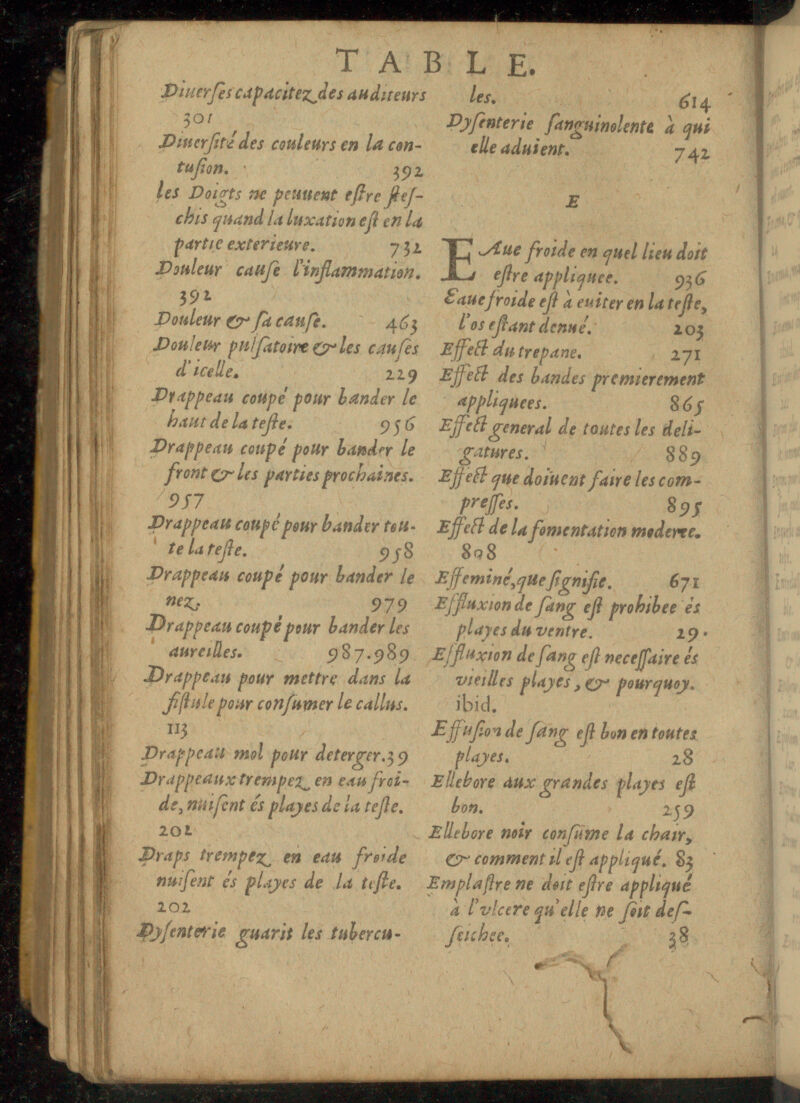 TABLE.
Diuerſes capacitez des auditeurs
301
Diuerſité des couleurs en la con-
tuſion. 392
les Doigts ne peuuent eſtre fleſ-
chis quand la luxation eſt en la
partie exterieure. 732
Douleur cauſe l'inflammation.
392
Douleur & ſa cauſe. 463
Douleur pulſatoire & les cauſes
d'icelle. 229
Drappeau coupé pour bander le
haut de la teſte. 956
Drappeau coupé pour bander le
front & les parties prochaines.
957
Drappeau coupé pour bander tou-
te la teſte. 958
Drappeau coupé pour bander le
nez, 979
Drappeau coupé pour bander les
aureilles. 987.989
Drappeau pour mettre dans la
fiſtule pour conſumer le callus.
113
Drappeau mol pour deterger.39
Drappeaux trempez en eau froi-
de, nuiſent és playes de la teſte.
202
Draps trempez en eau froide
nuiſent és playes de la teſte.
202
Dyſenterie guarit les tubercu-
les. 614
Dyſenterie ſanguinolente à qui
elle aduient. 742
E
EAue froide en quel lieu doit
eſtre appliquee. 936
Eaue froide eſt à euiter en la teſte,
l'os eſtant denué. 203
Effect du trepane. 271
Effect des bandes premierement
appliquees. 865
Effect general de toutes les deli-
gatures. 889
Effect que doiuent faire les com-
preſſes. 895
Effect de la fomentation moderee.
808
Effeminé,que ſignifie. 671
Effluxion de ſang eſt prohibee és
playes du ventre. 29
Effluxion de ſang eſt neceſſaire és
vieilles playes, & pourquoy.
ibid.
Effuſion de ſang eſt bon en toutes
playes. 28
Ellebore aux grandes playes eſt
bon. 259
Ellebore noir conſume la chair,
& comment il eſt appliqué. 83
Emplaſtre ne doit eſtre appliqué
à l'vlcere qu'elle ne ſoit deſ-
ſeichee. 38